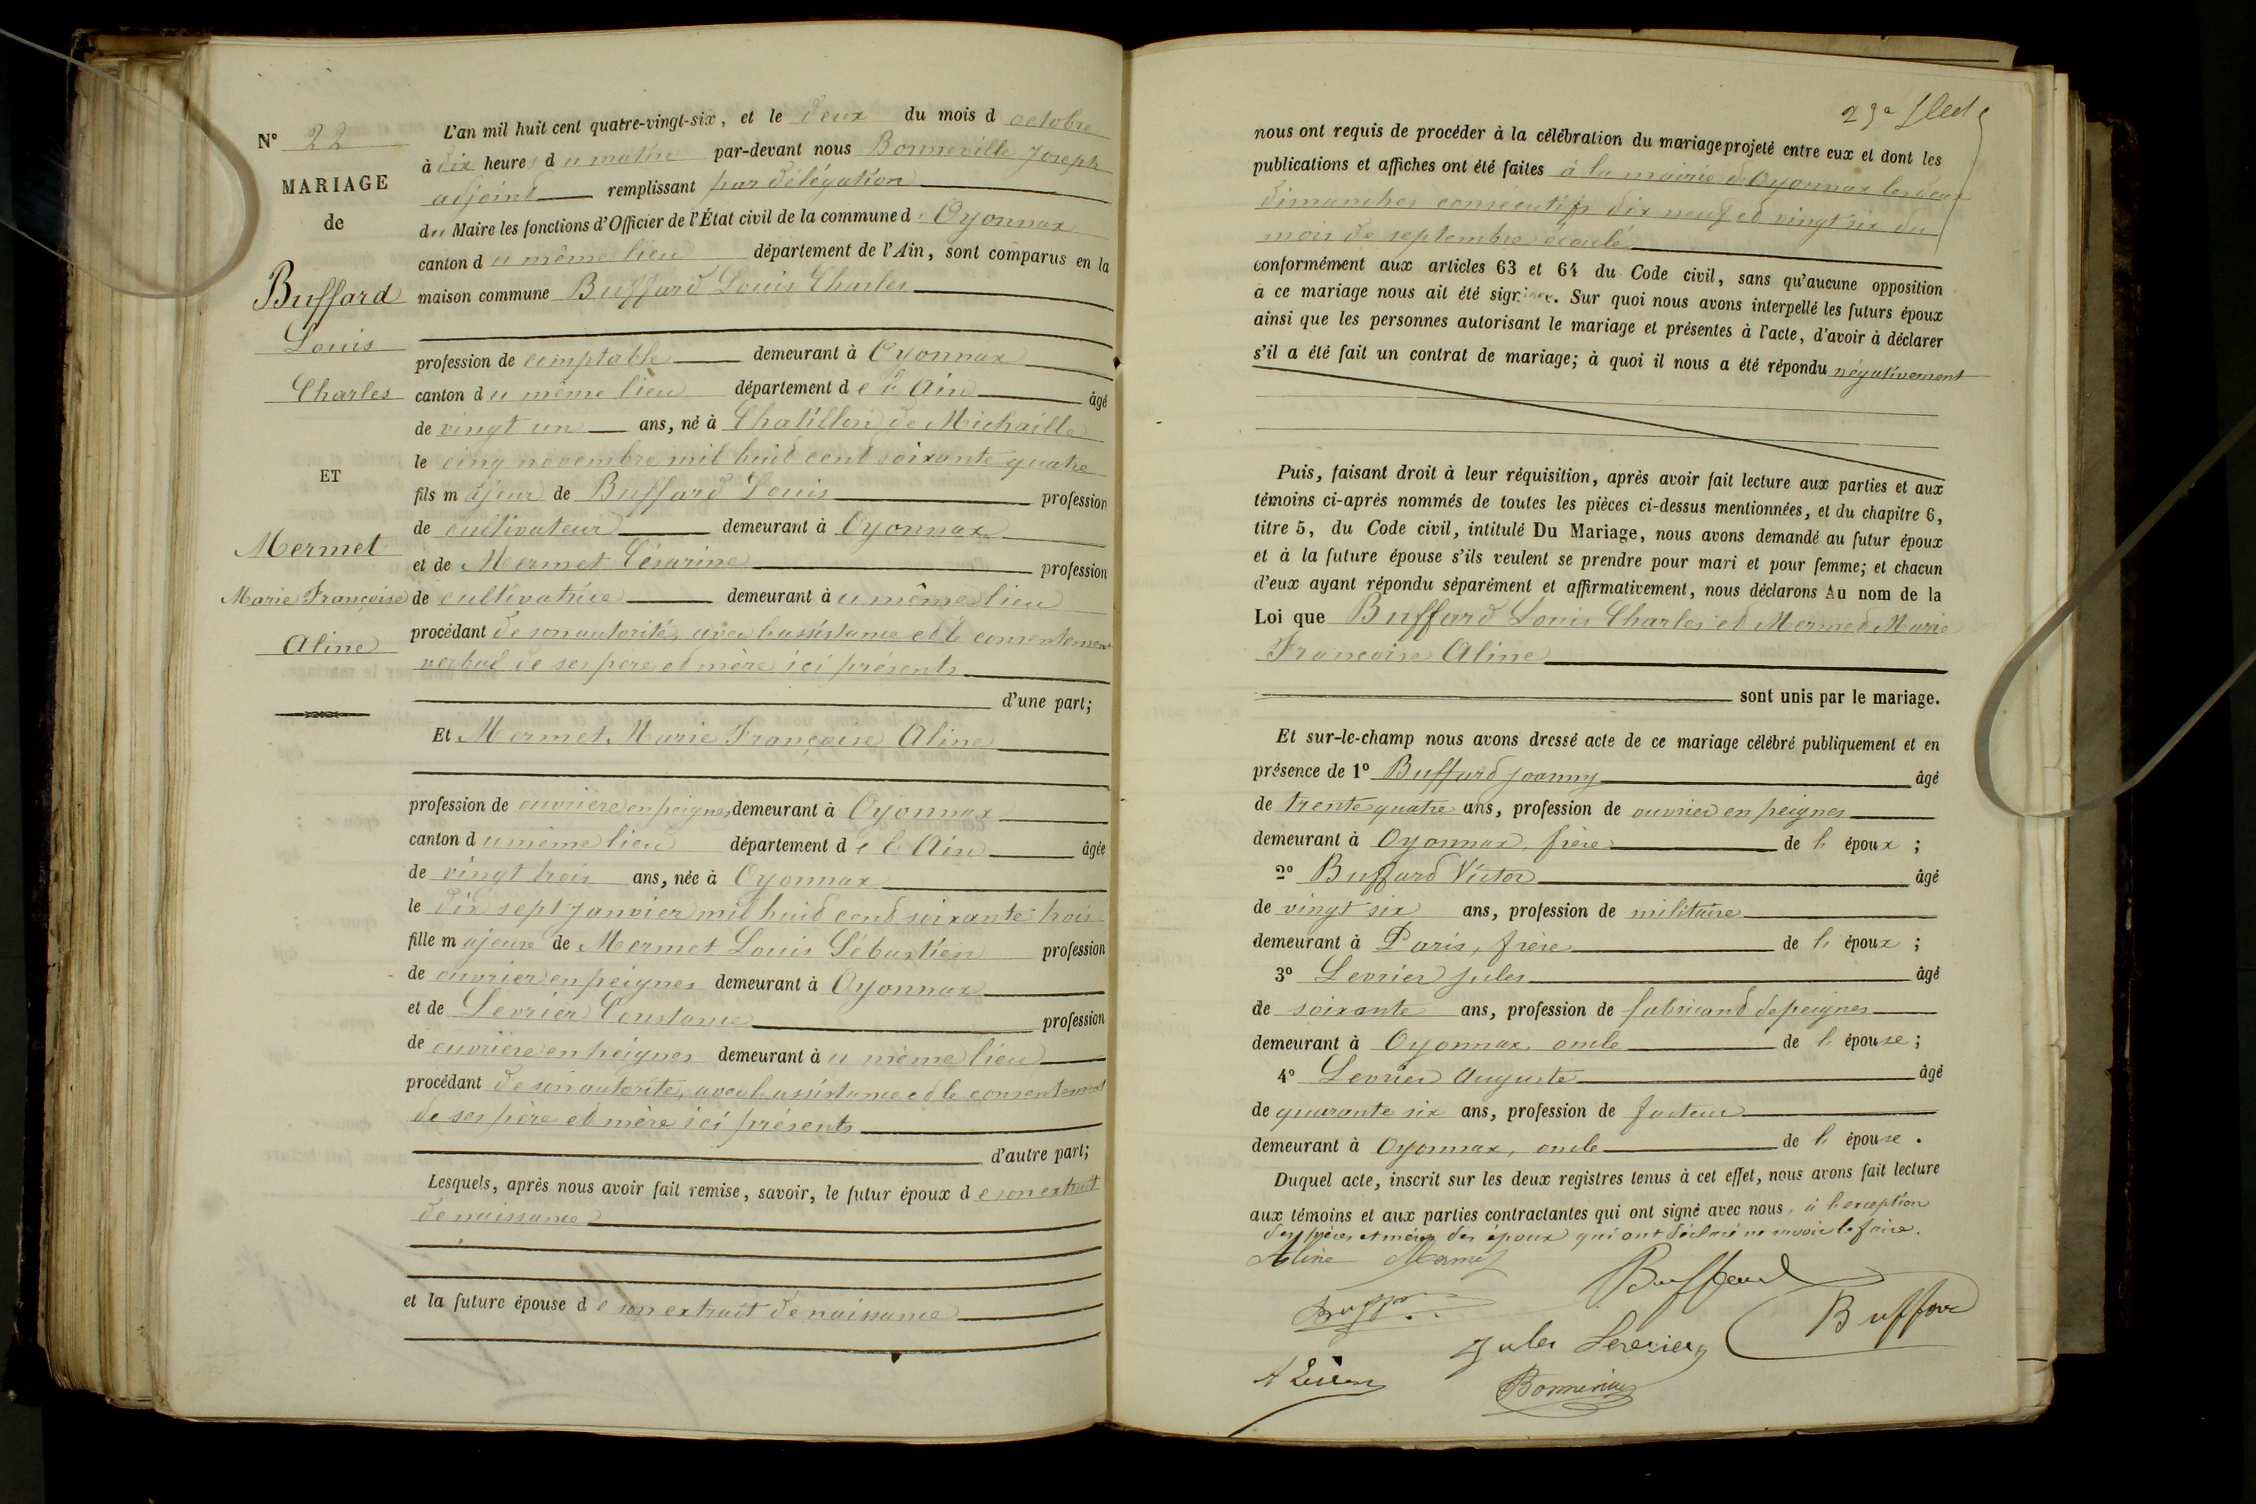 N° 22
MARIAGE
de
Buffard
Louis
Charles
ET
Mermet
Marie Françoise
Aline
L'an mil huit cent quatre-vingt-six, et le deux du mois d octobre
à dix heures du matin par-devant nous Bonneville Joseph
adjoint remplissant par délégation
du Maire les fonctions d'Officier de l'État civil de la commune d Oyonnax
canton du même lieu département de l'Ain, sont comparus en la
maison commune Buffard Louis Charles
profession de comptable demeurant à Oyonnax
canton du même lieu département de l'Ain âgé
de vingt un ans, né à Chatillon de Michaille
le cinq novembre mil huit cent soixante quatre
fils majeur de Buffard Louis profession
de cultivateur demeurant à Oyonnax
et de Mermet Césarine profession
de cultivatrice demeurant au même lieu
procédant de son autorité, avec l'assistance et le consentement
verbal de ses père et mère ici présents
d'une part;
Et Mermet Marie Françoise Aline
profession de ouvrière en peignes demeurant à Oyonnax
canton du même lieu département de l'Ain âgée
de vingt trois ans, née à Oyonnax
le dix sept janvier mil huit cent soixante trois
fille majeure de Mermet Louis Sébastien profession
de ouvrier en peignes demeurant à Oyonnax
et de Levrier Constance profession
de ouvrière en peignes demeurant au même lieu
procédant de son autorité, avec l'assistance et le consentement
de ses père et mère ici présents
d'autre part;
Lesquels, après nous avoir fait remise, savoir, le futur époux de son extrait
de naissance
et la future épouse de son extrait de naissance
nous ont requis de procéder à la célébration du mariage projeté entre eux et dont les
publications et affiches ont été faites à la mairie d'Oyonnax les deux
dimanches consécutifs dix neuf et vingt six du
mois de septembre écoulé
conformément aux articles 63 et 64 du Code civil, sans qu'aucune opposition
à ce mariage nous ait été signifiée. Sur quoi nous avons interpellé les futurs époux
ainsi que les personnes autorisant le mariage et présentes à l'acte, d'avoir à déclarer
s'il a été fait un contrat de mariage; à quoi il nous a été répondu négativement
Puis, faisant droit à leur réquisition, après avoir fait lecture aux parties et aux
témoins ci-après nommés de toutes les pièces ci-dessus mentionnées, et du chapitre 6,
titre 5, du Code civil, intitulé Du Mariage, nous avons demandé au futur époux
et à la future épouse s'ils veulent se prendre pour mari et pour femme; et chacun
d'eux ayant répondu séparément et affirmativement, nous déclarons Au nom de la
Loi que Buffard Louis Charles et Mermet Marie
Françoise Aline
sont unis par le mariage.
Et sur-le-champ nous avons dressé acte de ce mariage célébré publiquement et en
présence de 1° Buffard Joanny âgé
de trente quatre ans, profession de ouvrier en peignes
demeurant à Oyonnax, frère de l'époux;
2° Buffard Victor âgé
de vingt six ans, profession de militaire
demeurant à Paris, frère de l'époux;
3° Levrier Jules âgé
de soixante ans, profession de fabricant de peignes
demeurant à Oyonnax, oncle de l'épouse;
4° Levrier Auguste âgé
de quarante six ans, profession de facteur
demeurant à Oyonnax, oncle de l'épouse.
Duquel acte, inscrit sur les deux registres tenus à cet effet, nous avons fait lecture
aux témoins et aux parties contractantes qui ont signé avec nous, à l'exception
des pères et mères des époux qui ont déclaré ne savoir le faire.
Aline Mermet
Buffard
Buffard
Jules Levrier
Bonneville